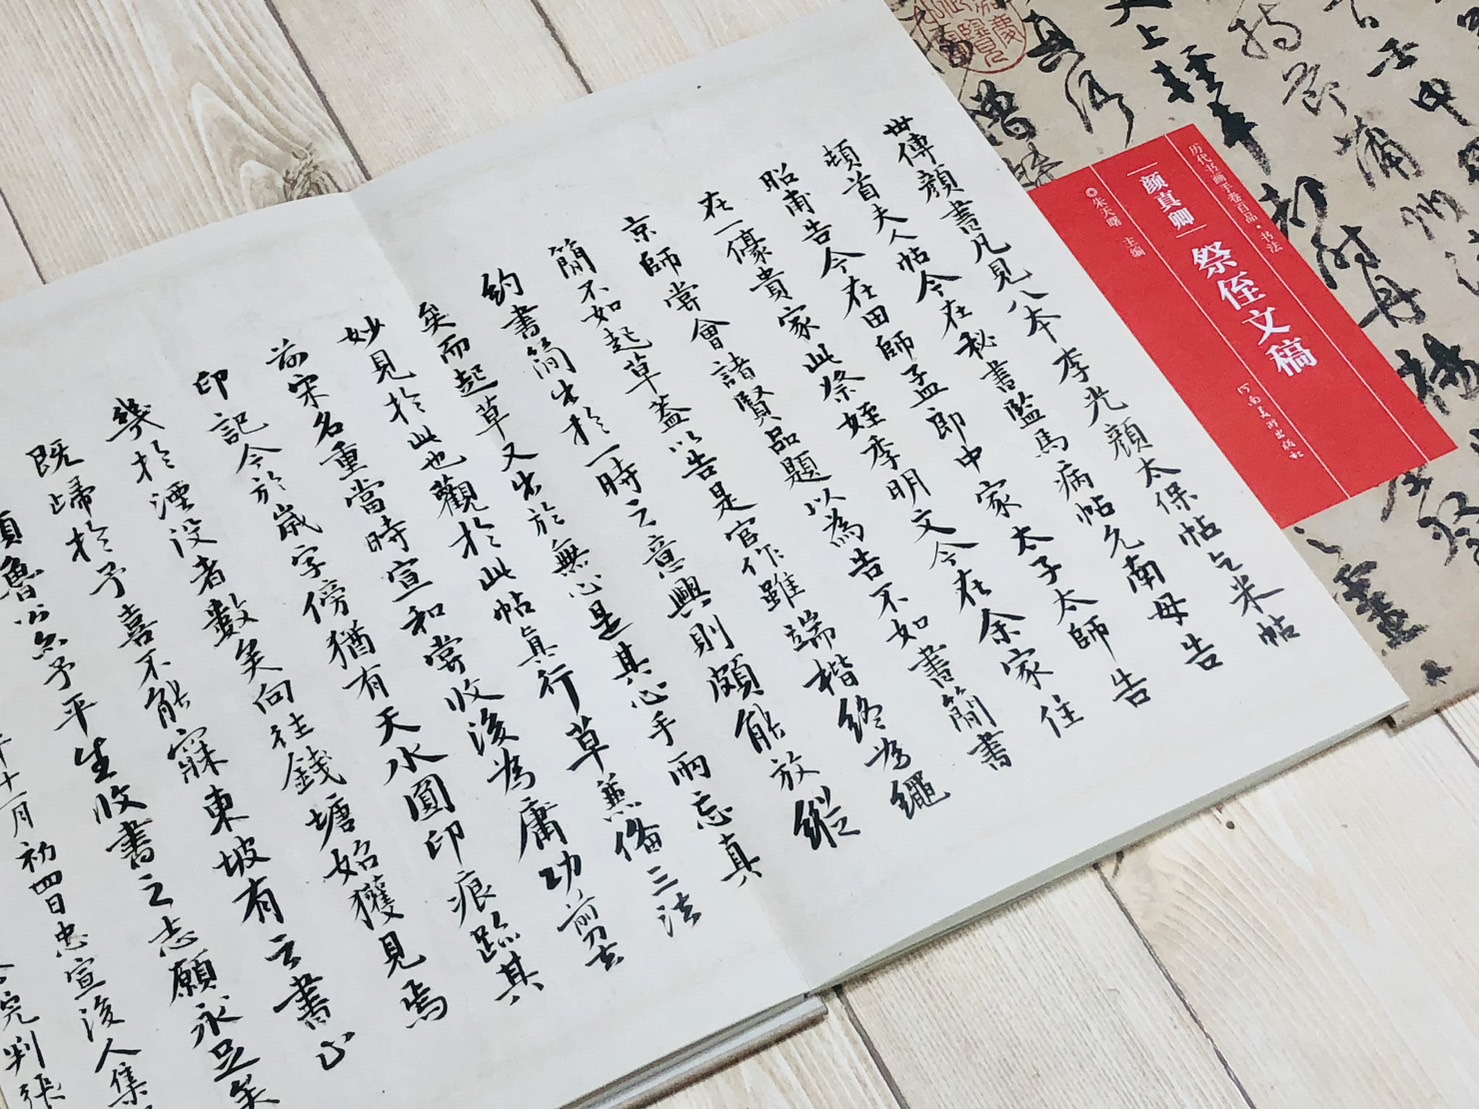 历代书画手卷百品·书法
颜真卿 祭侄文稿
河南美术出版社
朱天曙 主编
世傳顏書凡見八本李光顏太保帖乞米帖
頓首夫人帖今在秘書監馬病帖允南母告
昭甫告今在田師孟郎中家太子太師告
在一儫貴家此祭姪季明文今在余家住
京師嘗會諸賢品題以為告不如書簡書
簡不如起草蓋以告是官作雖端楷終為繩
約書簡出於一時之意興則頗能放縱
矣而起草又出於無心是其心手兩忘真
妙見於此也觀於此帖真行草兼備三法
前宋名重當時宣和嘗收後為庸功剪去
印記今於歲字傍猶有天水圓印痕跡其
幾於湮没者數矣向往錢塘始獲見焉
既歸於予喜不能寐東坡有云書止
顏魯公矣予平生收書之志願永足矣
年十一月初四日忠宣後人集
完判張